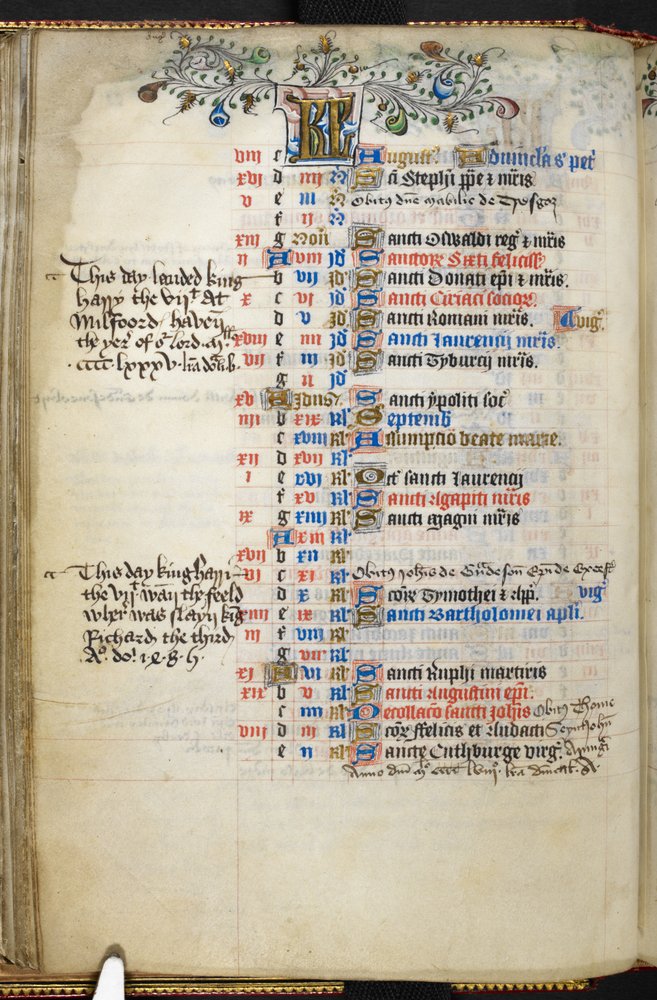 KL
viii c Augustꝰ Aduincla s pet
xvi d iiii N Sci Stephi ppe ⁊ mris
v e iii N Obitus dne mabilie de
f ii N
xiii g Non Sancti Oswaldi reg ⁊ mris
ii A viii Id Sanctorr Sixti felicissi
b vii Id Sancti Donati epi ⁊ mris.
x c vi Id Sancti Ciriaci socior.
d v Id Sancti Romani mris. Vig
xviii e iiii Id Sancti Laurencij mris.
vii f iii Id Sancti Tyburcij mris.
g ii Id
xv A Idus. Sancti ypoliti soc
iiii b xix kl Septemb
c xviii kl Assumptio beate marie.
xii d xvii kl
i e xvi kl Oct sancti Laurencij
f xv kl Sancti Agapiti mris
ix g xiiii kl Sancti Magni mris
A xiii kl
xvii b xii kl
vi c xi kl Obitus Johis de
d x kl Scor Tymothei ⁊ vig
xiiii e ix kl Sancti Bartholomei apli.
iii f viii kl
g vii kl
xi A vi kl Sancti Ruphi martiris
xix b v kl Sancti Augustini epi:
c iiii kl Decollaco sancti Johis Obitus Thome
viii d iii kl Scor ffelicis et Audacti Seynt John
e ii kl Sancte Cuthburge virg.
Anno dni Mo cccc lviii. lra dnicat. A
This day landed king
harry the viit At
Milfoord haven
the yer of or lord. M.
.cccc.lxxxv. lra dnicalib.
This day king harri
the viit wan the feeld
wher was slayn kig
Richard the third
Ao. do. 1.4.8.5.